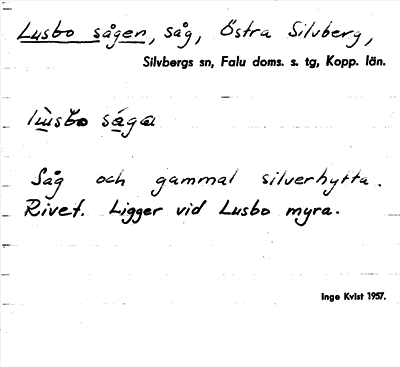 Lusbo sågen, såg, Östra Silvberg,
Silvbergs sn, Falu doms. s. tg, Kopp. län.
såga
Såg och gammal silverhytta.
Rivet. Ligger vid Lusbo myra.
Inge Kvist 1957.